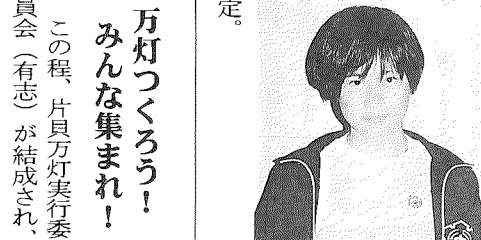 定。
万灯つくろう！
みんな集まれ！
この程、片貝万灯実行委
員会（有志）が結成され、